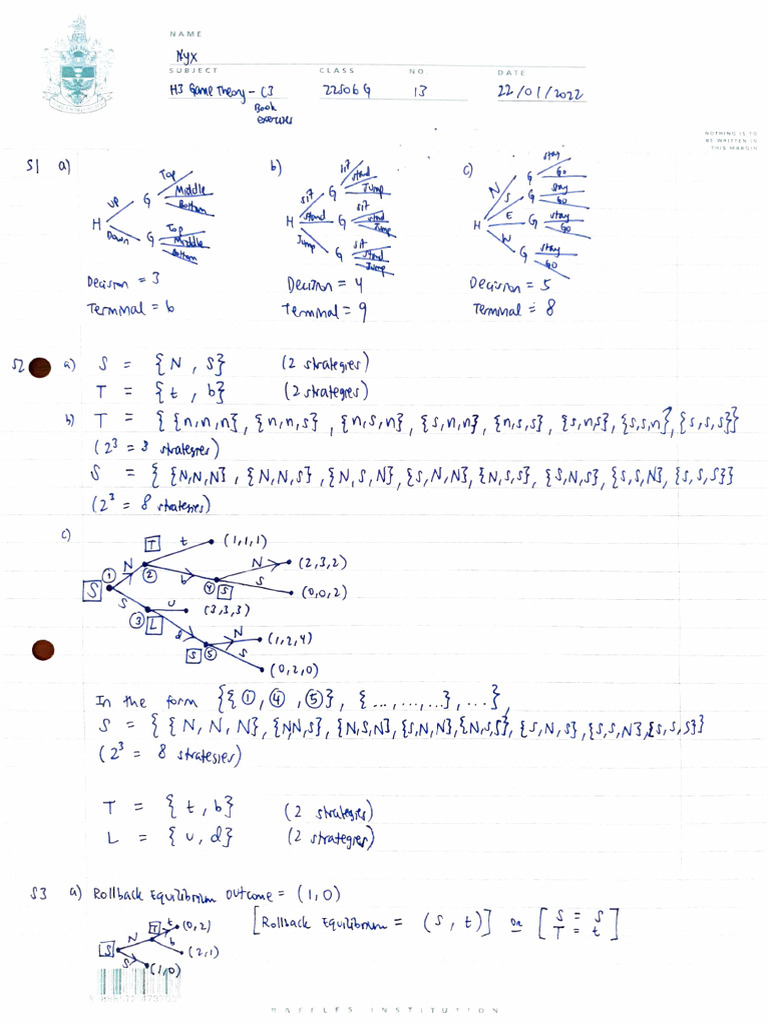 NAME
Nyx
SUBJECT CLASS NO. DATE
H3 Game Theory - C3 22S06G 13 22/01/2022
Book
exercises
NOTHING IS TO
BE WRITTEN IN
THIS MARGIN
S1 a) b) c)
H Up G Top Middle Bottom
Down G Top Middle Bottom
H sit G sit stand Jump
stand G sit stand Jump
Jump G sit stand Jump
H N G stay Go
S G stay Go
E G stay Go
W G stay Go
Decision = 3 Decision = 4 Decision = 5
Terminal = 6 Terminal = 9 Terminal = 8
S2 a) S = {N, S} (2 strategies)
T = {t, b} (2 strategies)
b) T = {{n,n,n}, {n,n,s}, {n,s,n}, {s,n,n}, {n,s,s}, {s,n,s}, {s,s,n}, {s,s,s}}
(2³ = 8 strategies)
S = {{N,N,N}, {N,N,S}, {N,S,N}, {S,N,N}, {N,S,S}, {S,N,S}, {S,S,N}, {S,S,S}}
(2³ = 8 strategies)
c) T t (1,1,1)
① N ② b ④ S N (2,3,2)
S S (0,0,2)
S u (3,3,3)
③ L d N (1,2,4)
S ⑤ S (0,2,0)
In the form {{①, ④, ⑤}, {..., ..., ...}, ...},
S = {{N, N, N}, {N,N,S}, {N,S,N}, {S,N,N}, {N,S,S}, {S,N,S}, {S,S,N}, {S,S,S}}
(2³ = 8 strategies)
T = {t, b} (2 strategies)
L = {u, d} (2 strategies)
S3 a) Rollback Equilibrium outcome = (1,0)
[Rollback Equilibrium = (S, t)] or [S = S
T = t]
S N T t (0,2)
b (2,1)
S (1,0)
RAFFLES INSTITUTION